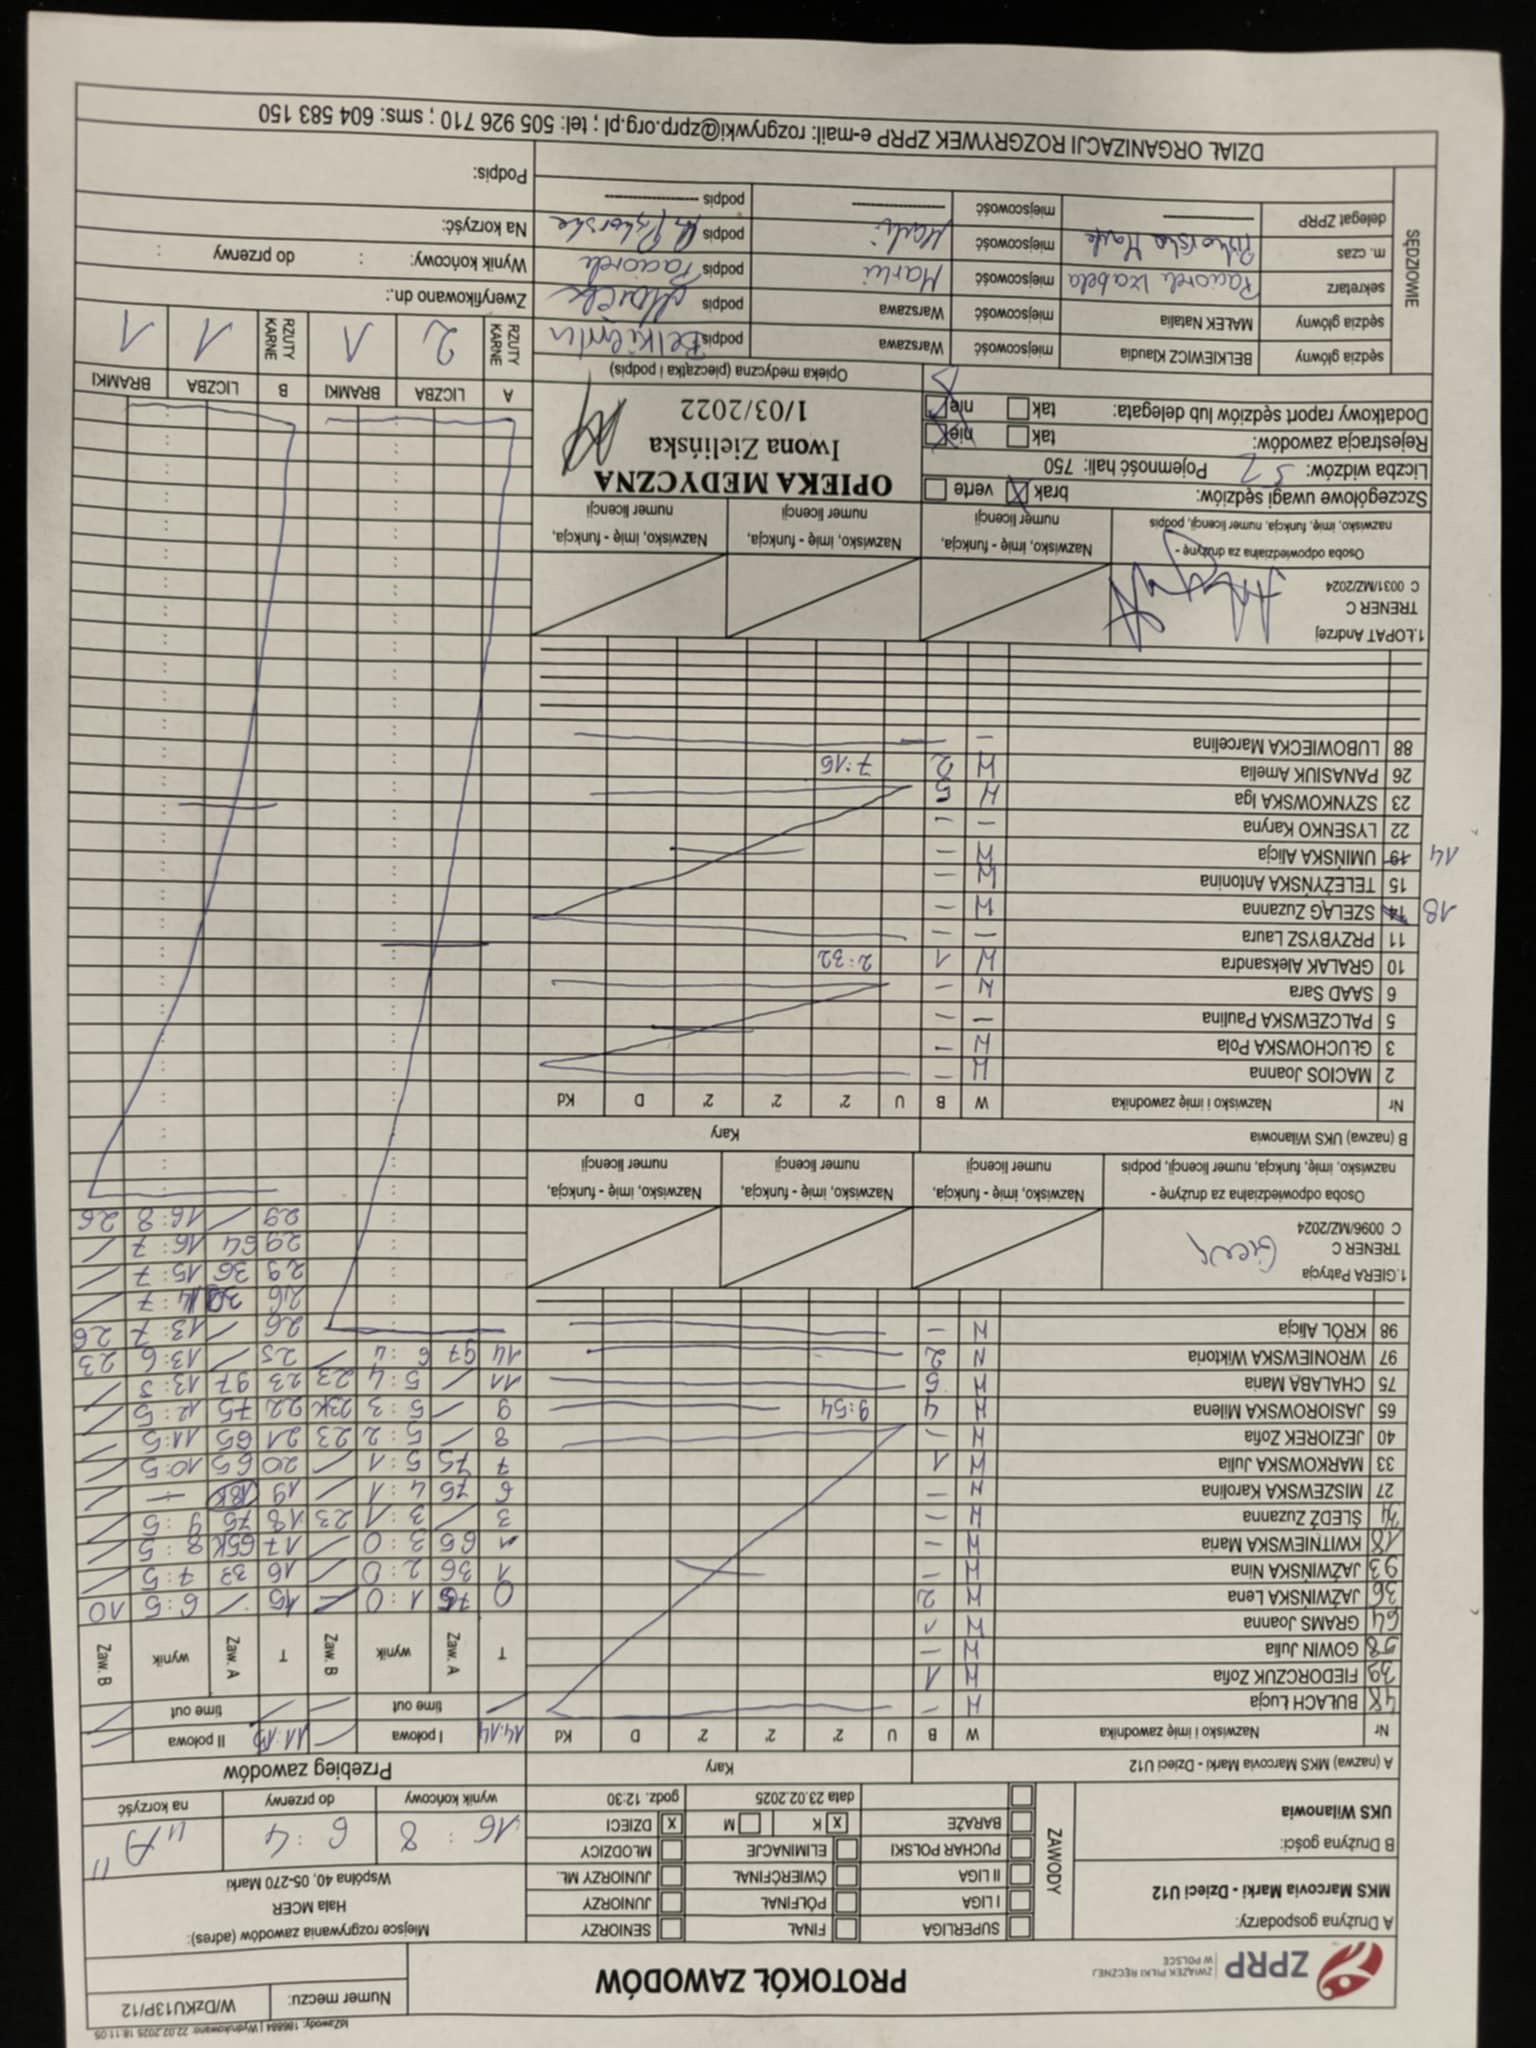 IdZawody: 186884 | Wydrukowano: 22.02.2025 18:11:05
ZPRP
ZWIĄZEK PIŁKI RĘCZNEJ
W POLSCE
PROTOKÓŁ ZAWODÓW
Numer meczu: W/DzKU13P/12
A Drużyna gospodarzy:
MKS Marcovia Marki - Dzieci U12
B Drużyna gości:
UKS Wilanowia
ZAWODY
SUPERLIGA FINAŁ SENIORZY
I LIGA PÓŁFINAŁ JUNIORZY
II LIGA ĆWIERĆFINAŁ JUNIORZY MŁ.
PUCHAR POLSKI ELIMINACJE MŁODZICY
BARAŻE X K M X DZIECI
data 23.02.2025 godz. 12:30
Miejsce rozgrywania zawodów (adres):
Hala MCER
Wspólna 40, 05-270 Marki
16 : 8 6 : 4 "A"
wynik końcowy do przerwy na korzyść
A (nazwa) MKS Marcovia Marki - Dzieci U12 Kary
Nr Nazwisko i imię zawodnika W B U 2' 2' 2' D Kd
48 BUŁACH Łucja W -
39 FIEDORCZUK Zofia W 1
58 GOWIN Julia W -
64 GRAMS Joanna W 1
36 JAŹWIŃSKA Lena W 2
93 JAŹWIŃSKA Nina W -
18 KWITNIEWSKA Maria W -
ŚLEDŹ Zuzanna W -
27 MISZEWSKA Karolina W -
33 MARKOWSKA Julia W 1
40 JEZIOREK Zofia W -
65 JASIOROWSKA Milena W 4 9:54
75 CHALABA Maria W 5
97 WRONIEWSKA Wiktoria W 2
98 KRÓL Alicja W -
1.GIERA Patrycja
TRENER C
C 0096/MZ/2024
Osoba odpowiedzialna za drużynę -
nazwisko, imię, funkcja, numer licencji, podpis
Nazwisko, imię - funkcja,
numer licencji
Nazwisko, imię - funkcja,
numer licencji
Nazwisko, imię - funkcja,
numer licencji
B (nazwa) UKS Wilanowia Kary
Nr Nazwisko i imię zawodnika W B U 2' 2' 2' D Kd
2 MACIOS Joanna W -
3 GŁUCHOWSKA Pola W -
5 PALCZEWSKA Paulina - -
6 SAAD Sara W -
10 GRALAK Aleksandra W 1 2:32
11 PRZYBYSZ Laura - -
18 14 SZELĄG Zuzanna W -
15 TELEŻYŃSKA Antonina W -
14 19 UMIŃSKA Alicja W -
22 LYSENKO Karyna - -
23 SZYNKOWSKA Iga W 5
26 PANASIUK Amelia W 2 7:16
88 LUBOWIECKA Marcelina -
1.ŁOPAT Andrzej
TRENER C
C 0031/MZ/2024
Osoba odpowiedzialna za drużynę -
nazwisko, imię, funkcja, numer licencji, podpis
Nazwisko, imię - funkcja,
numer licencji
Nazwisko, imię - funkcja,
numer licencji
Nazwisko, imię - funkcja,
numer licencji
Szczegółowe uwagi sędziów: brak verte
Liczba widzów: 57 Pojemność hali: 750
Rejestracja zawodów: tak nie
Dodatkowy raport sędziów lub delegata: tak nie
OPIEKA MEDYCZNA
Iwona Zielińska
1/03/2022
Opieka medyczna (pieczątka i podpis)
SĘDZIOWIE
sędzia główny BELKIEWICZ Klaudia miejscowość Warszawa podpis
sędzia główny MAŁEK Natalia miejscowość Warszawa podpis
sekretarz Paciorek Izabela miejscowość Marki podpis Paciorek
m. czas miejscowość Marki podpis
delegat ZPRP miejscowość podpis
Przebieg zawodów
14:14 I połowa 11:13 II połowa
time out time out
T Zaw. A wynik Zaw. B T Zaw. A wynik Zaw. B
0 75 1 : 0 / 15 / 6 : 5 10
1 36 2 : 0 / 16 33 7 : 5 /
1 65 3 : 0 / 17 65K 8 : 5 /
3 / 3 : 1 23 18 75 9 : 5 /
6 75 4 : 1 / 19 18K - /
7 75 5 : 1 / 20 65 10:5 /
8 / 5 : 2 23 21 65 11:5 /
9 / 5 : 3 23K 22 75 12:5 /
11 / 5 : 4 23 23 97 13:5 /
14 97 6 : 4 / 25 / 13:6 23
26 / 13:7 26
26 39 14:7 /
29 36 15:7 /
29 64 16:7 /
29 / 16:8 26
A LICZBA BRAMKI B LICZBA BRAMKI
RZUTY KARNE 2 1 RZUTY KARNE 1 1
Zweryfikowano dn.:
Wynik końcowy: : do przerwy :
Na korzyść:
Podpis:
DZIAŁ ORGANIZACJI ROZGRYWEK ZPRP e-mail: rozgrywki@zprp.org.pl ; tel: 505 926 710 ; sms: 604 583 150